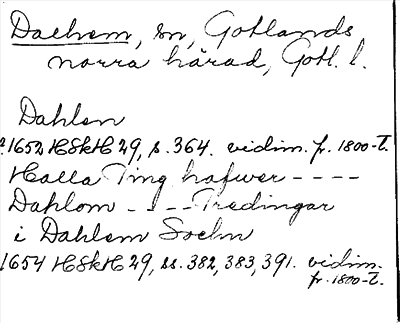 Dalhem, sn, Gotlands
norra härad, Gotl. l.
Dahlem
1652 HSkH 29, s. 364. vidim. fr. 1800-t.
Halla Ting hafwer ----
Dahlom - - -- Tredingar
i Dahlem Sochn
1654 HSkH 29, ss. 382, 383, 391. vidim.
fr. 1800-t.